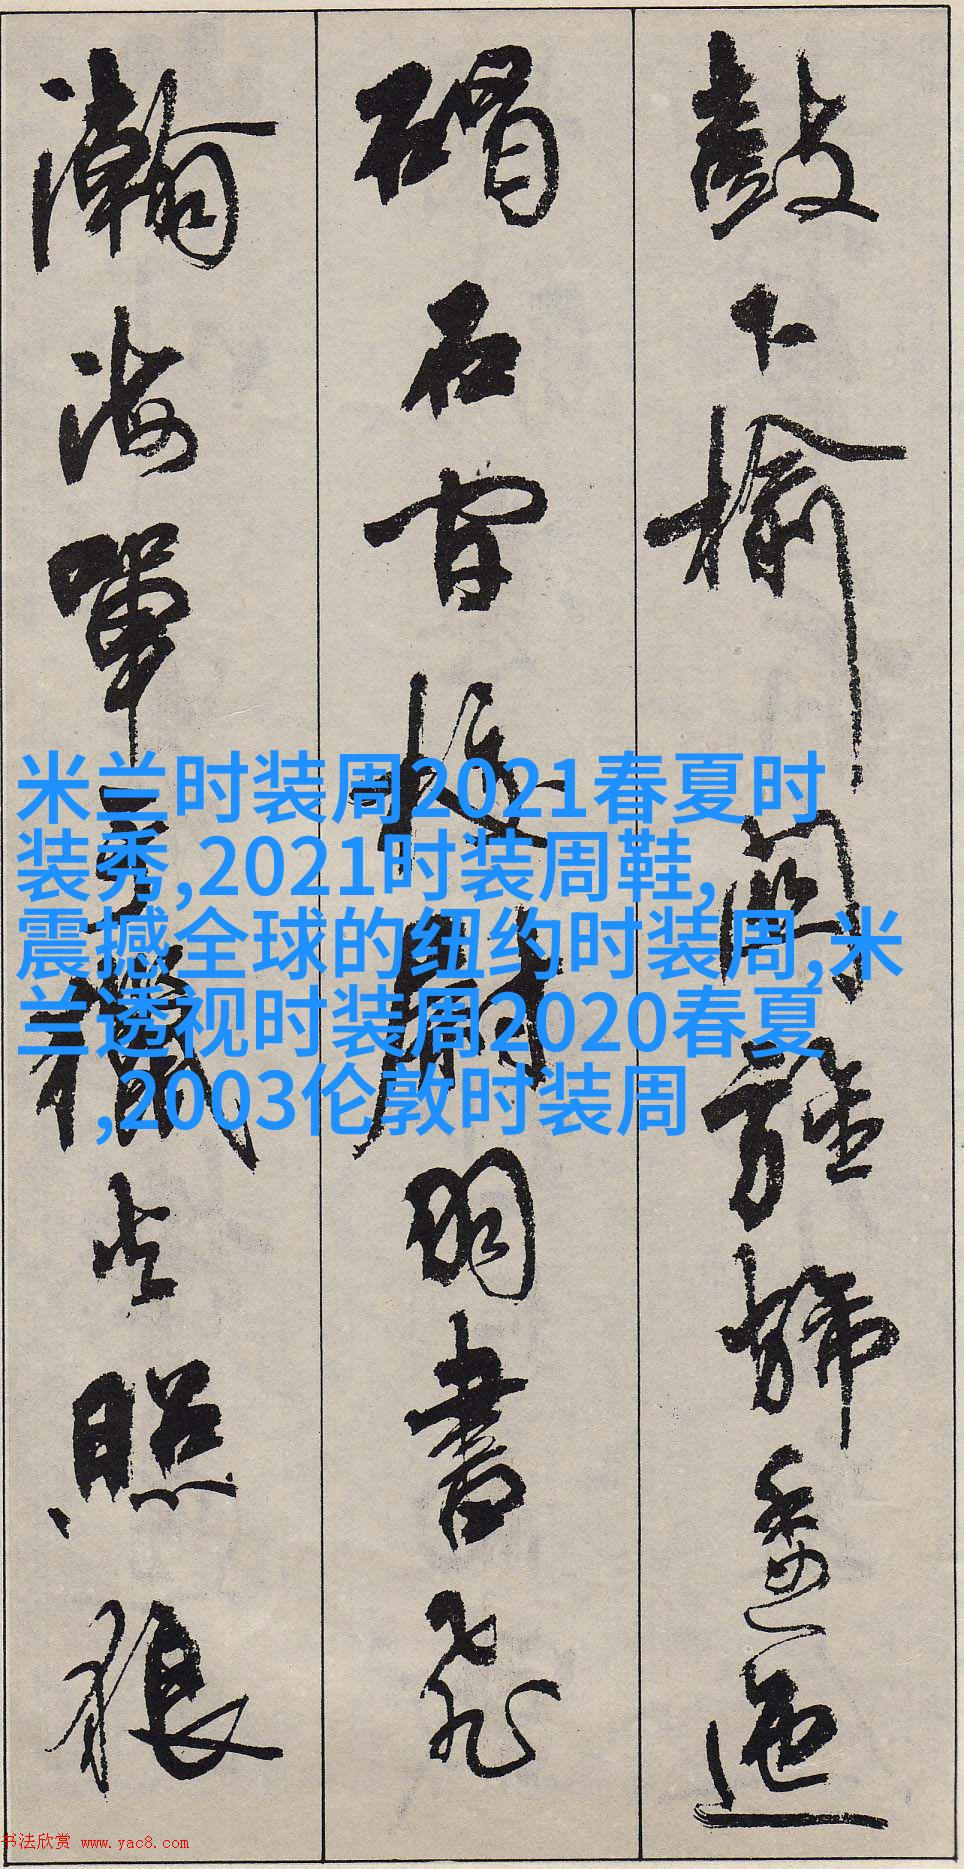 鼓下榆關旌旆逶迤
碣石間校尉羽書飛
瀚海單于獵火照狼
米兰时装周2021春夏时
装秀,2021时装周鞋,
震撼全球的纽约时装周,米
兰透视时装周2020春夏
,2003伦敦时装周
书法欣赏 www.yac8.com